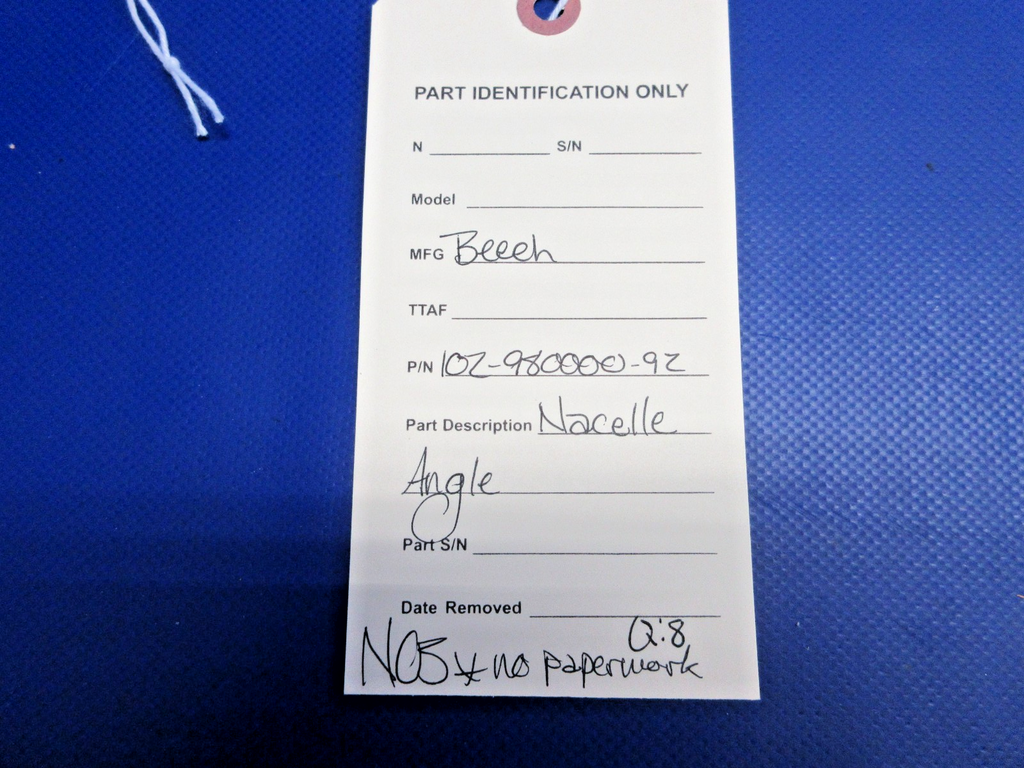 PART IDENTIFICATION ONLY
N S/N
Model
MFG Beech
TTAF
P/N 102-980000-92
Part Description Nacelle
Angle
Part S/N
Date Removed
Q:8
NOS * no paperwork